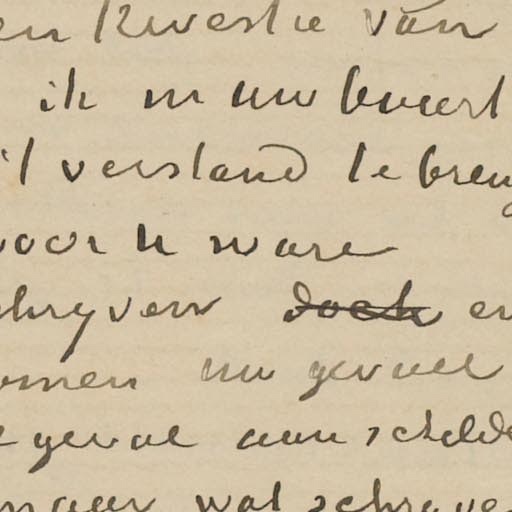 en kwestie van
ik in uw buurt
't verstand te breng
voor u ware
chryven doch en
omen uw gevoel
geval aan schilde
maar wat schryve